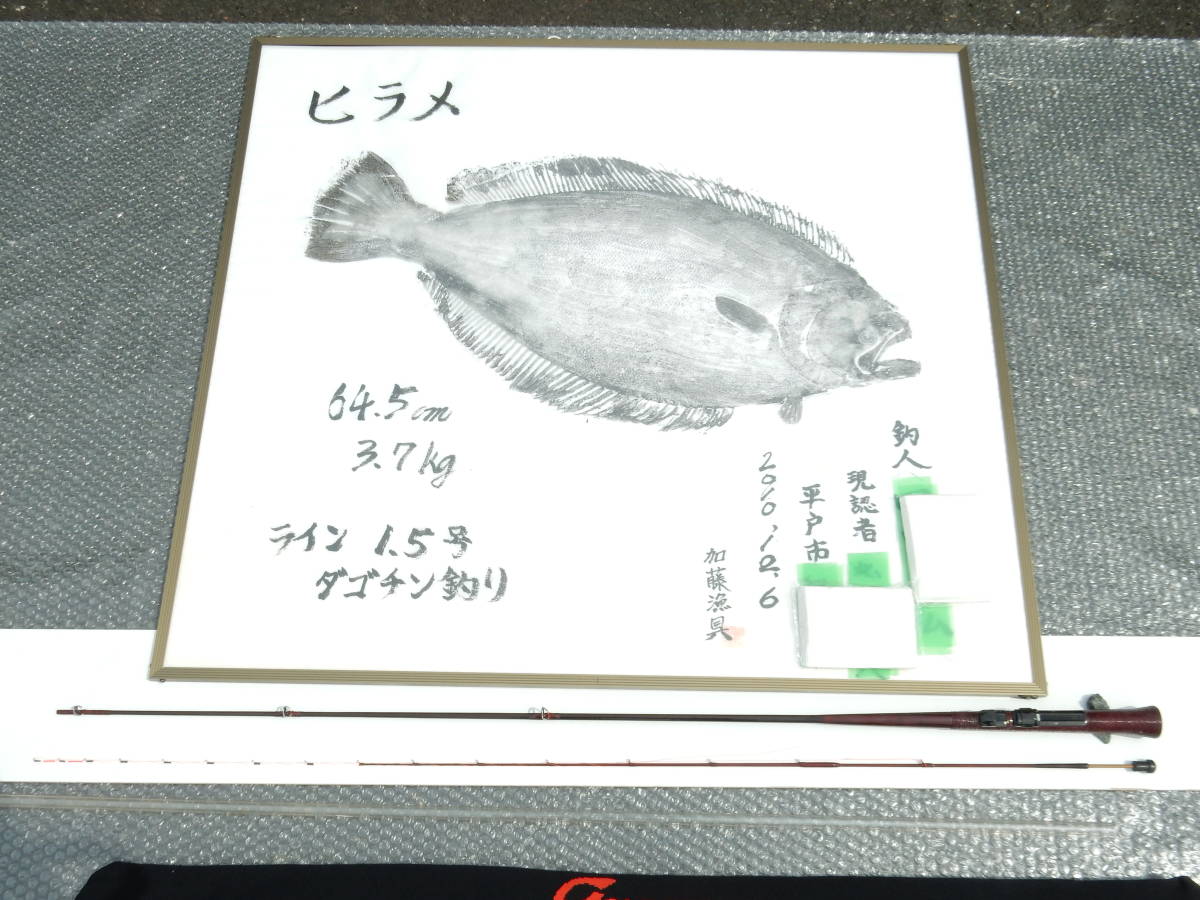 ヒラメ
64.5cm
3.7kg
ライン 1.5号
ダゴチン釣り
釣人
現認者
平戸市
2010.12.6
加藤漁具